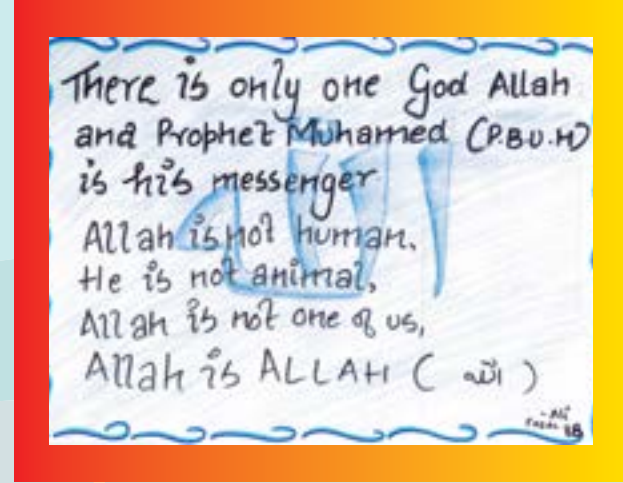 There is only one God Allah
and Prophet Muhamed (P.B.U.H)
is his messenger
Allah is not human.
He is not animal,
Allah is not one of us,
Allah is ALLAH ( الله )
الله
- Ali
8B